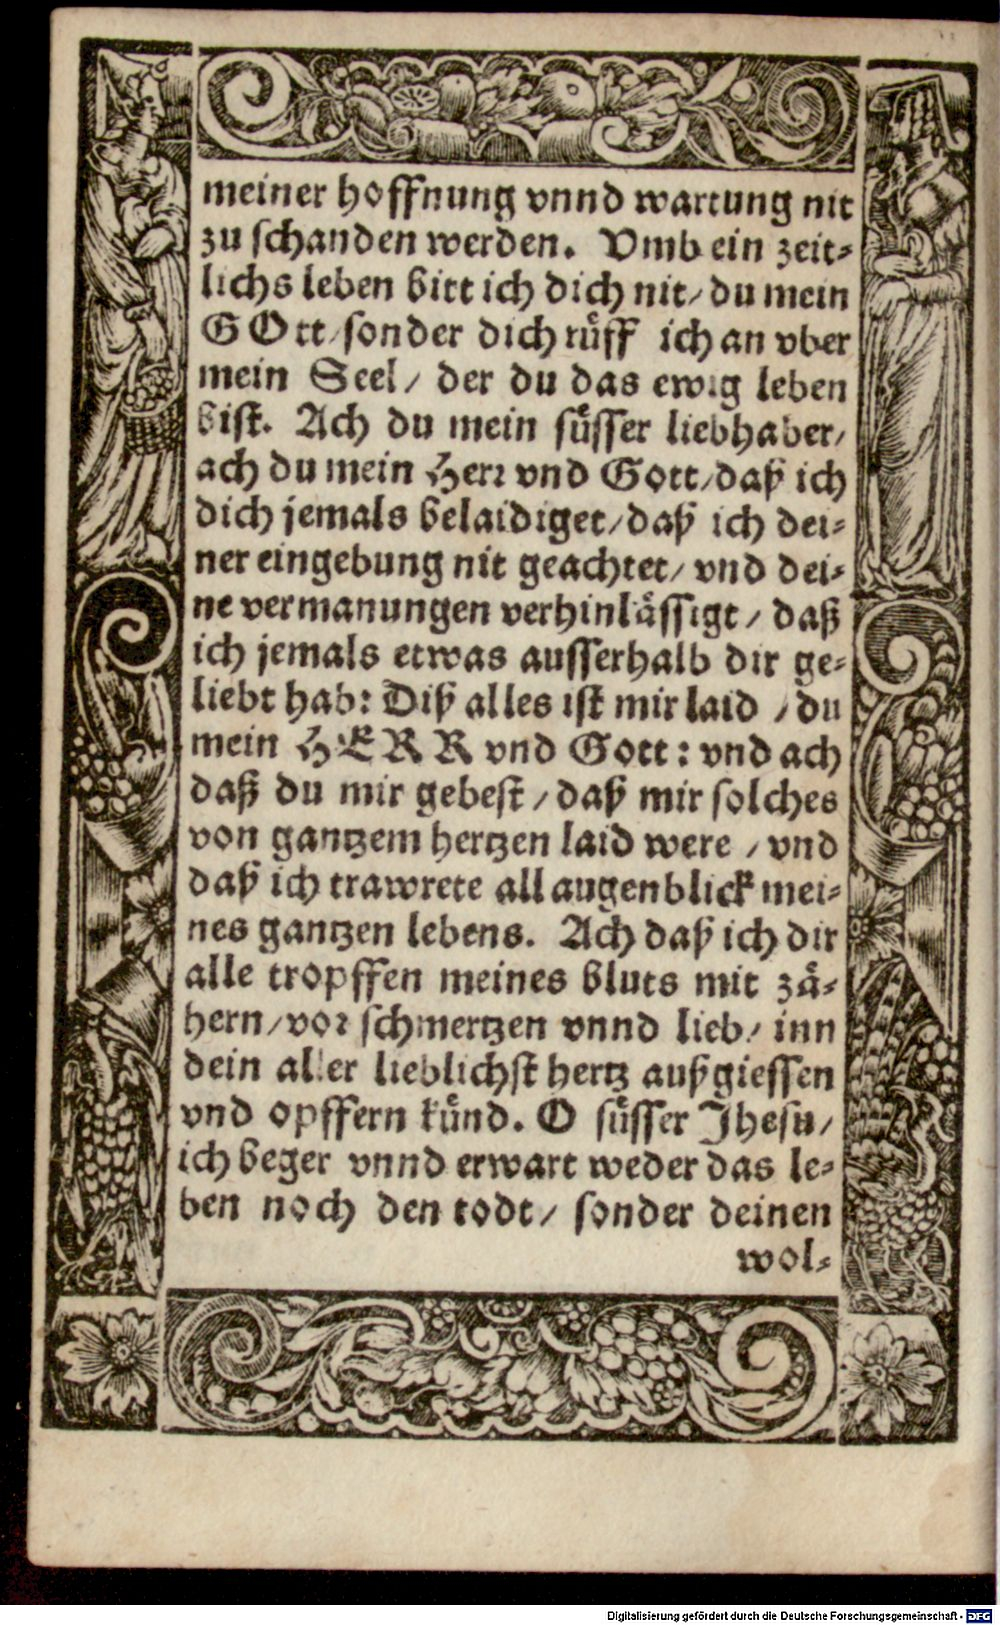 meiner hoffnung vnnd wartung nit
zu schanden werden. Vmb ein zeit-
lichs leben bitt ich dich nit/ du mein
GOtt/ sonder dich rüff ich an vber
mein Seel/ der du das ewig leben
bist. Ach du mein süsser liebhaber/
ach du mein Herr vnd Gott/ daß ich
dich jemals belaidiget/ daß ich dei-
ner eingebung nit geachtet/ vnd dei-
ne vermanungen verhinlässigt/ daß
ich jemals etwas ausserhalb dir ge-
liebt hab: Diß alles ist mir laid / du
mein HERR vnd Gott: vnd ach
daß du mir gebest / daß mir solches
von gantzem hertzen laid were / vnd
daß ich trawrete all augenblick mei-
nes gantzen lebens. Ach daß ich dir
alle tropffen meines bluts mit zä-
hern/ vor schmertzen vnnd lieb/ inn
dein aller lieblichst hertz außgiessen
vnd opffern künd. O süsser Jhesu/
ich beger vnnd erwart weder das le-
ben noch den todt/ sonder deinen
wol-
Digitalisierung gefördert durch die Deutsche Forschungsgemeinschaft - DFG